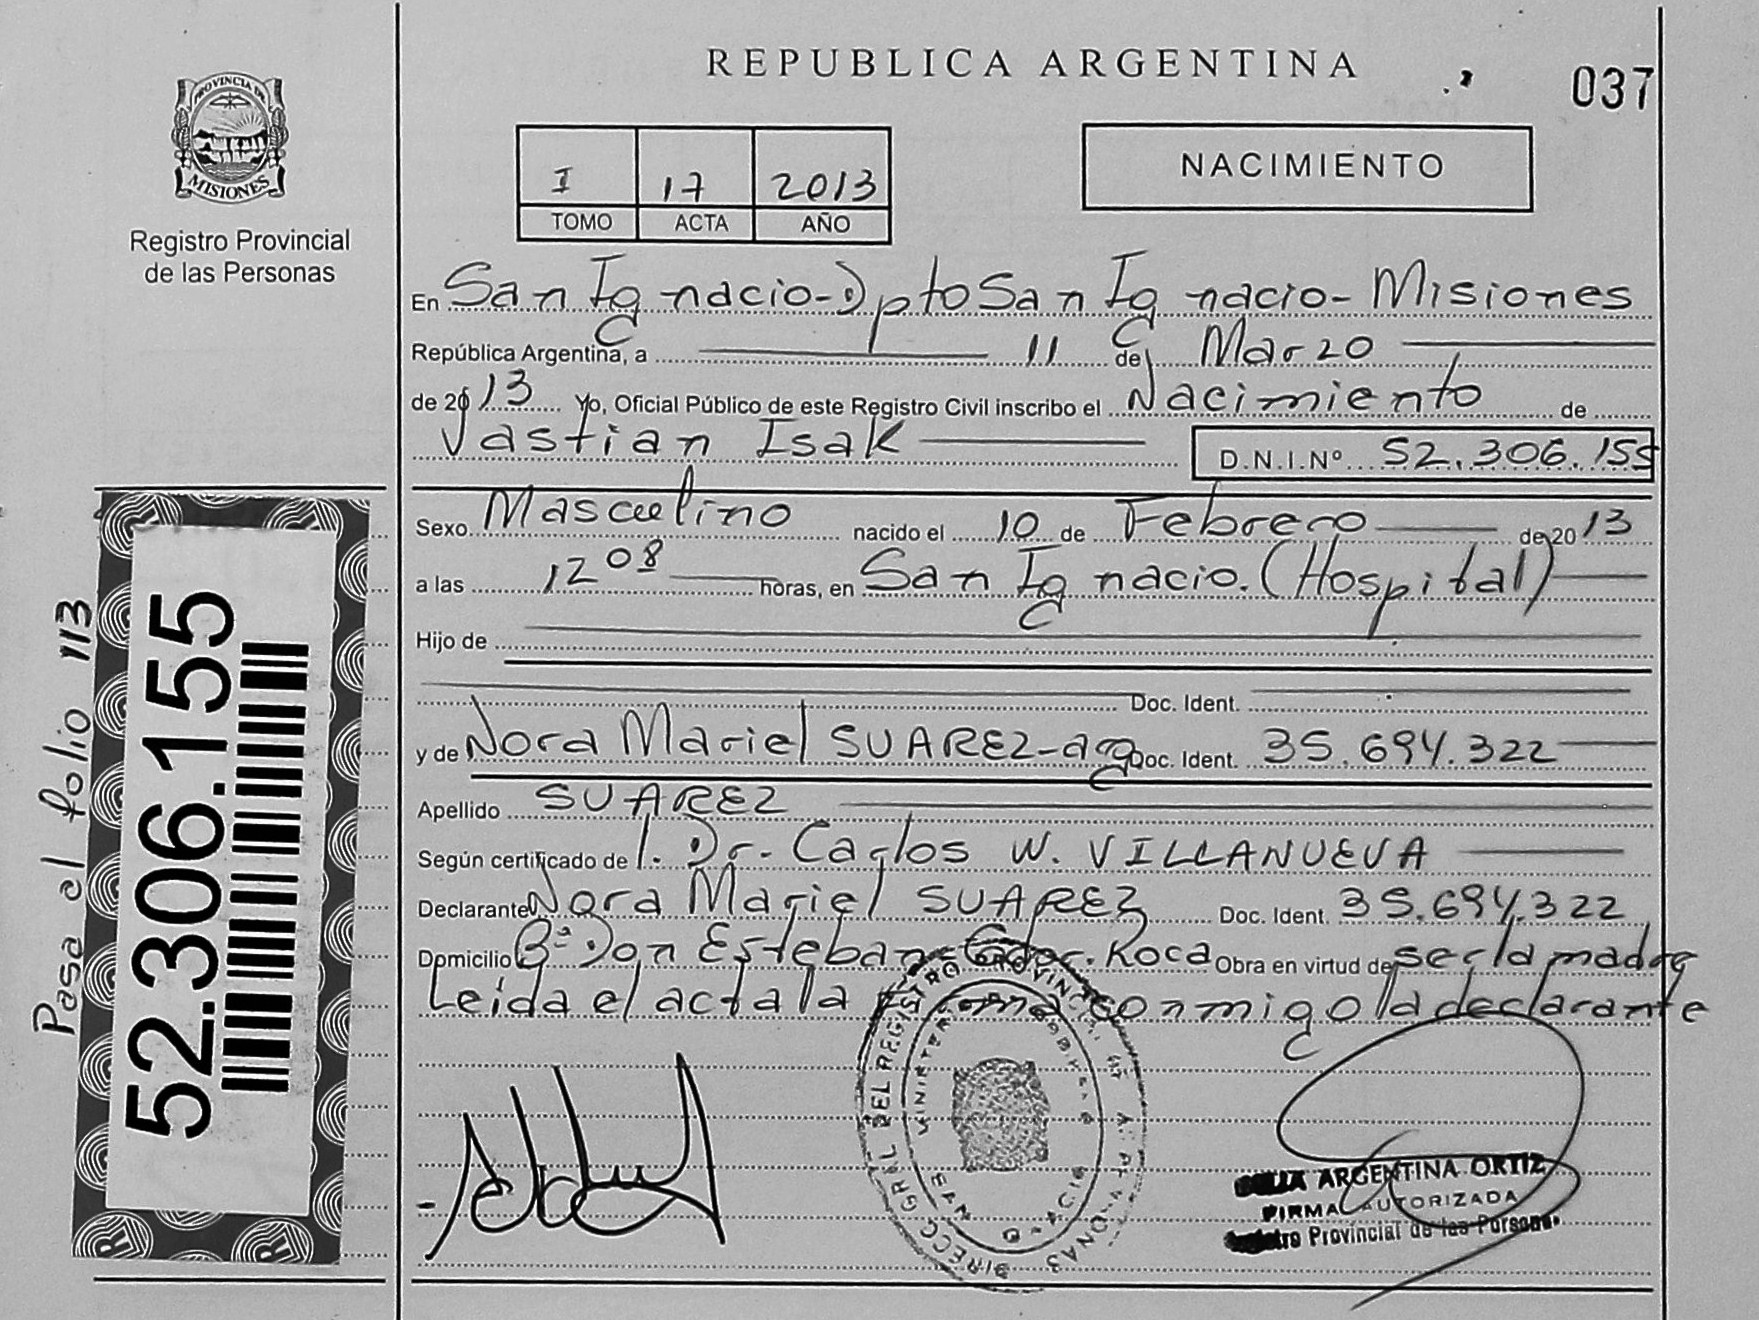 REPUBLICA ARGENTINA
037
PROVINCIA DE
MISIONES
Registro Provincial
de las Personas
I 17 2013
TOMO ACTA AÑO
NACIMIENTO
En San Ignacio-Dpto San Ignacio-Misiones
República Argentina, a 11 de Marzo
de 2013 Yo, Oficial Público de este Registro Civil inscribo el Nacimiento de
Vastian Isak D.N.I.Nº 52.306.155
Sexo Masculino nacido el 10 de Febrero de 2013
a las 12 08 horas, en San Ignacio. (Hospital)
Hijo de
Doc. Ident.
y de Nora Mariel SUAREZ-arg Doc. Ident. 35.694.322
Apellido SUAREZ
Según certificado de l. Dr. Carlos W. VILLANUEVA
Declarante Nora Mariel SUAREZ Doc. Ident. 35.694.322
Domicilio Bº Don Esteban-Gdor. Roca Obra en virtud de ser la madre
Leída el acta la firma conmigo la declarante
Pasa el folio 113
52.306.155
DEL REGISTRO PROVINCIAL
ARGENTINA ORTIZ
FIRMA AUTORIZADA
Registro Provincial de las Personas